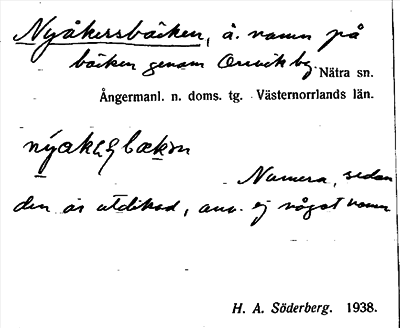 Nyåkersbäcken, ä. namn på
bäcken genom Örvik by. Nätra sn.
Ångermanl. n. doms. tg. Västernorrlands län.
Numera, sedan
den är utdikad, anv. ej något namn
H. A. Söderberg. 1938.